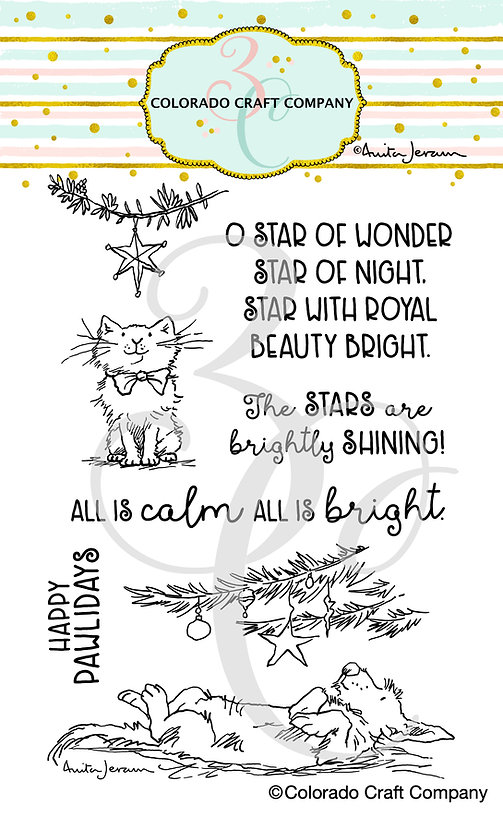 3C
COLORADO CRAFT COMPANY
©Anita Jeram
O STAR OF WONDER
STAR OF NIGHT,
STAR WITH ROYAL
BEAUTY BRIGHT.
The STARS are
brightly SHINING!
ALL IS calm ALL IS bright.
HAPPY
PAWLIDAYS
Anita Jeram
3C
©Colorado Craft Company